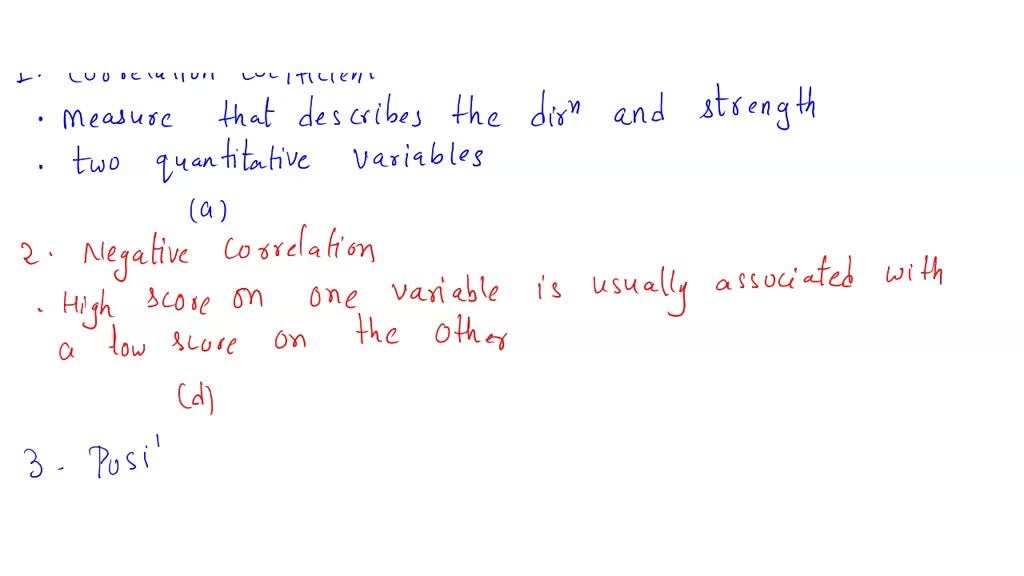 1. Correlation coefficient
. measure that describes the dirn and strength
. two quantitative variables
(a)
2. Negative Correlation
. High score on one variable is usually associated with
a low score on the other
(d)
3. Posi